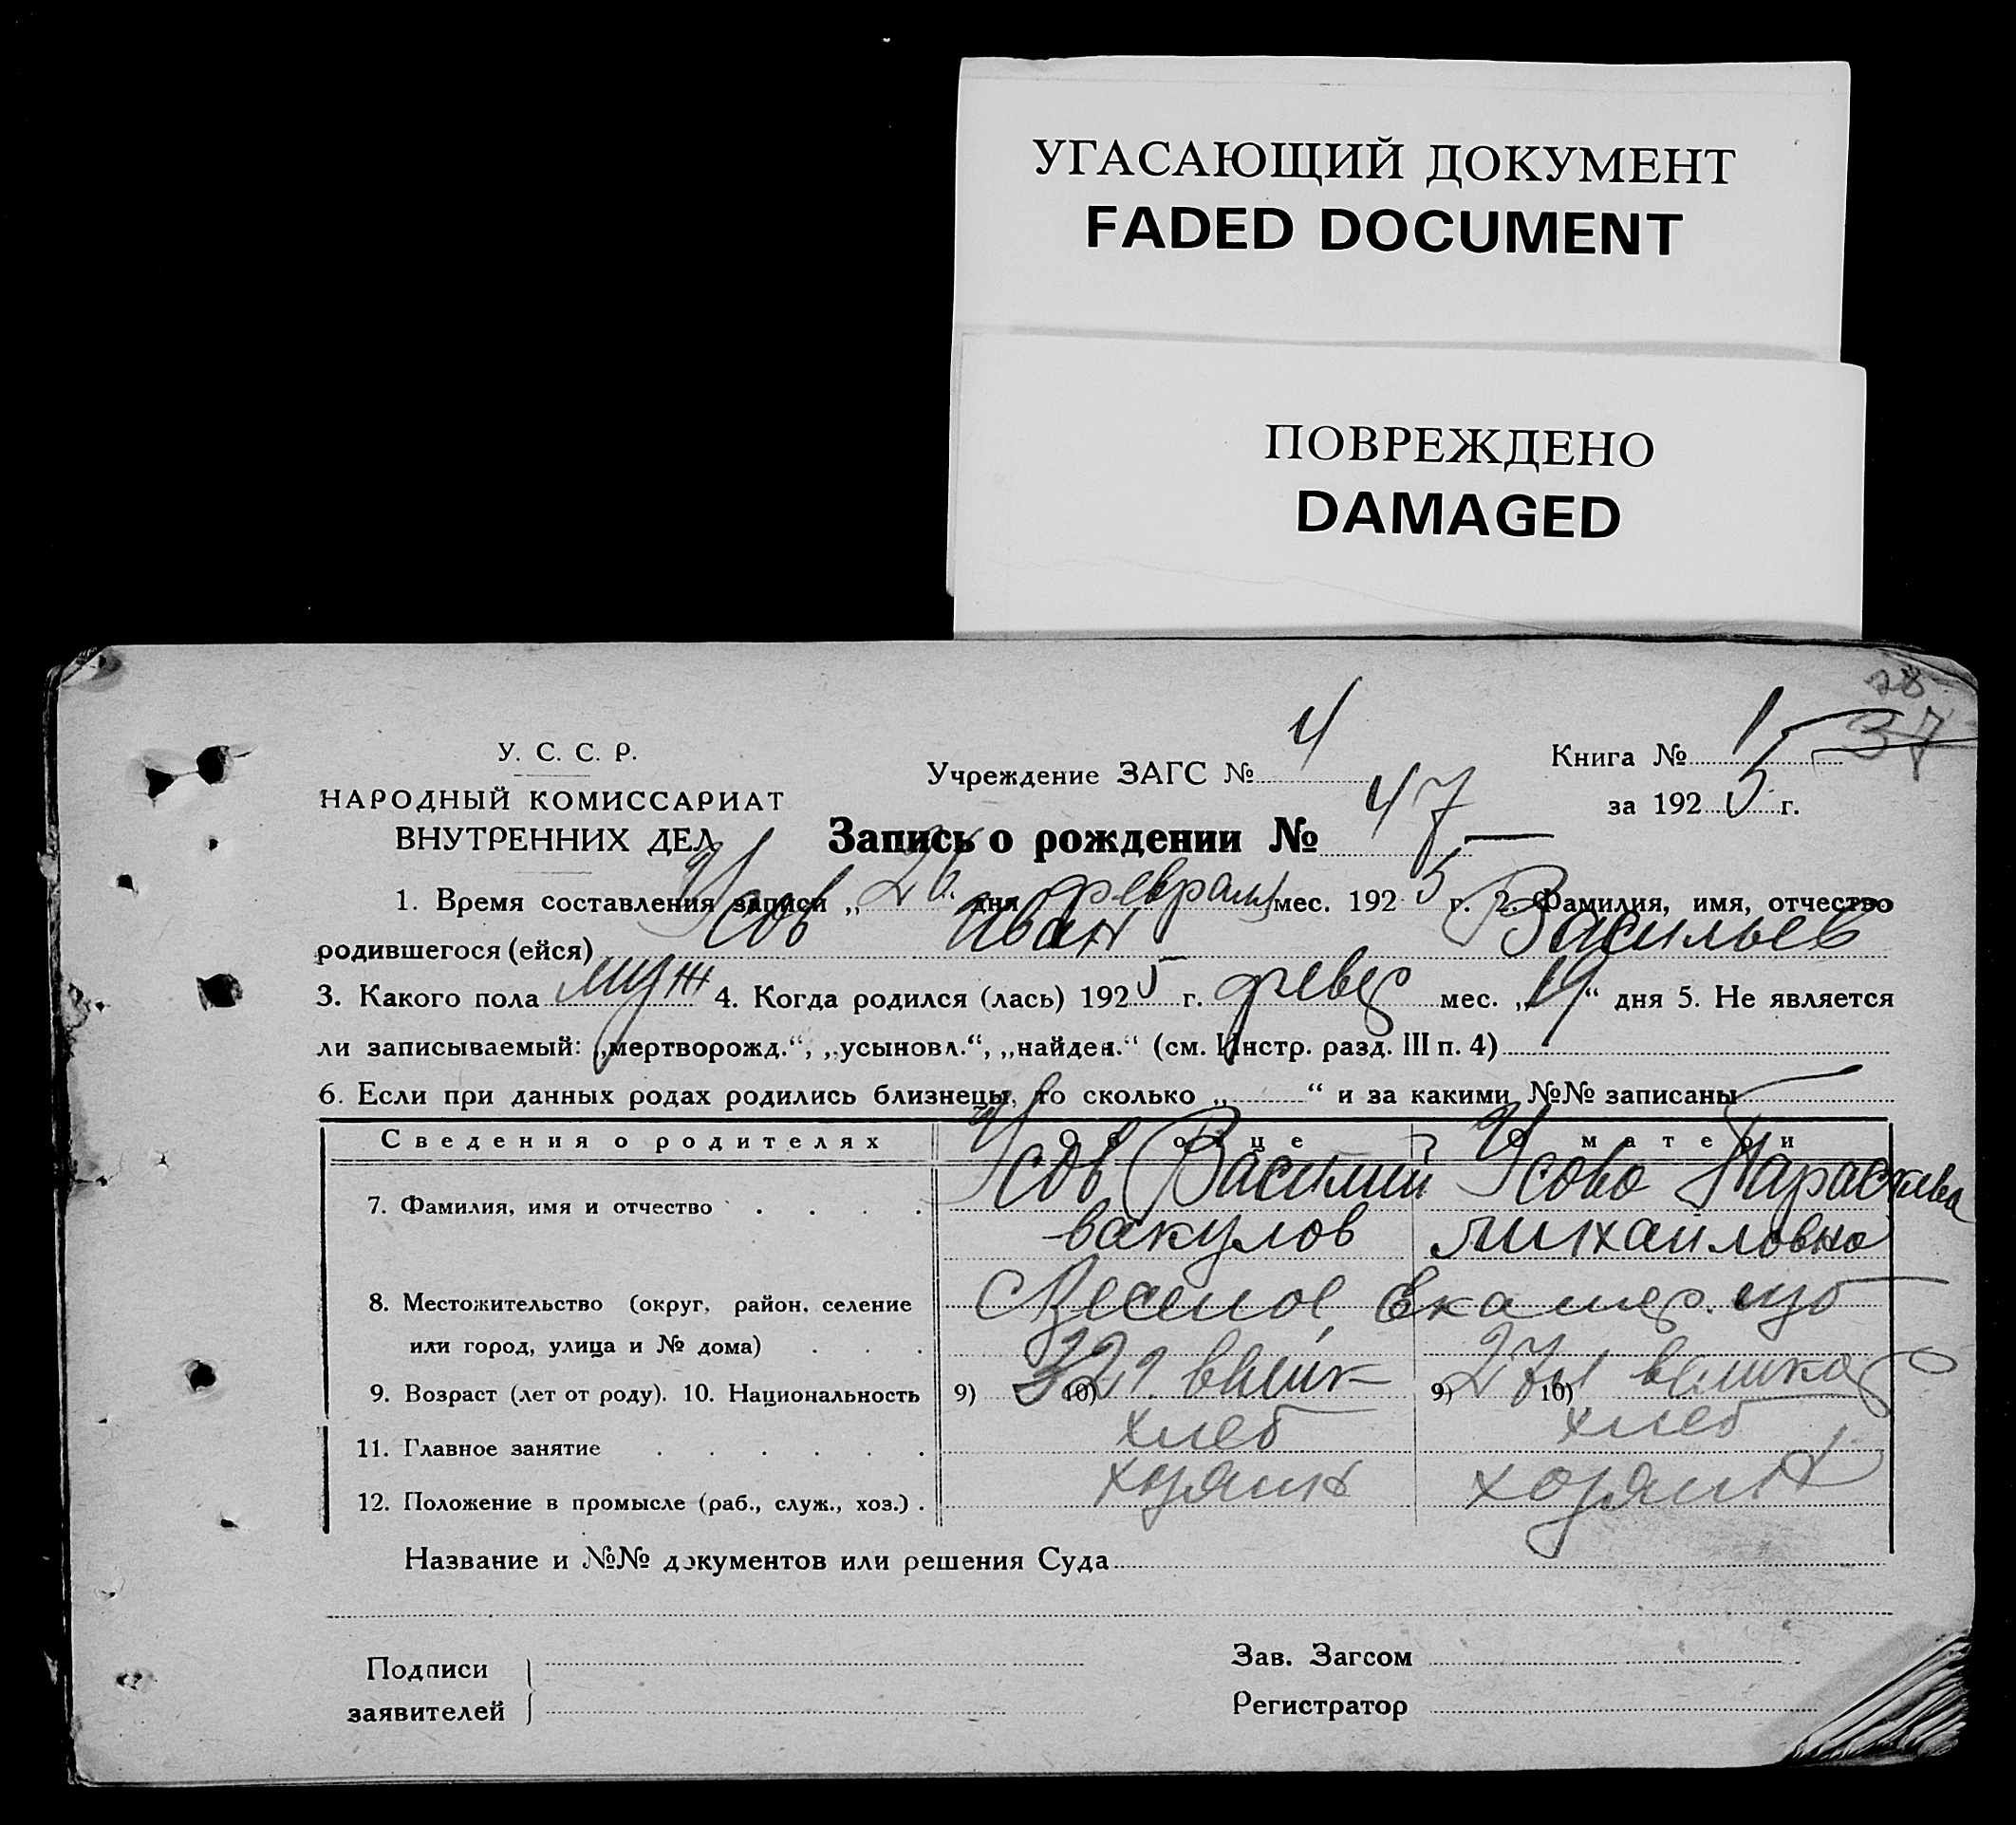 УГАСАЮЩИЙ ДОКУМЕНТ
FADED DOCUMENT
ПОВРЕЖДЕНО
DAMAGED
28
37
У. С. С. Р.
НАРОДНЫЙ КОМИССАРИАТ
ВНУТРЕННИХ ДЕЛ
Учреждение ЗАГС № 4
Книга № 1
за 1925 г.
Запись о рождении № 47
1. Время составления записи „26 дня февраля мес. 1925 г. 2. Фамилия, имя, отчество
родившегося (ейся) Усов Иван Васильев
3. Какого пола муж 4. Когда родился (лась) 1925 г. февр мес. „19“ дня 5. Не является
ли записываемый: „мертворожд.“, „усыновл.“, „найден.“ (см. Инстр. разд. III п. 4)
6. Если при данных родах родились близнецы, то сколько „ “ и за какими №№ записаны
Сведения о родителях Об отце О матери
7. Фамилия, имя и отчество Усов Василий Усова Параскева
Вакулов Михайловна
8. Местожительство (округ, район, селение с Веселое, Екатер.
или город, улица и № дома)
9. Возраст (лет от роду). 10. Национальность 9) 32 10) 9) 27 10)
11. Главное занятие хлеб хлеб
12. Положение в промысле (раб., служ., хоз.) хозяин хозяин
Название и №№ документов или решения Суда
Подписи
заявителей
Зав. Загсом
Регистратор